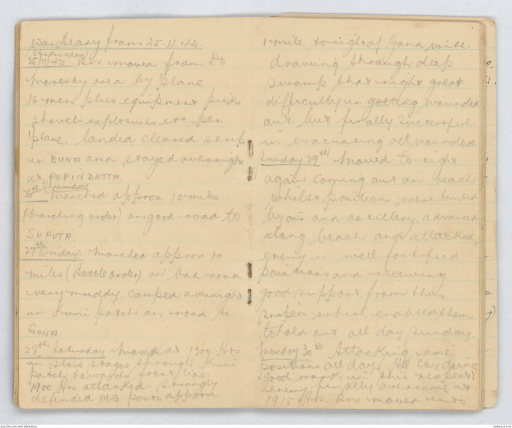 War Diary from 25.11.42
(Wednesday)
25/11/42 Bn moved from Pt
Moresby area by plane
16 men plus equipment picks
shovels explosives etc per
plane, landed cleared strip
in BUNA area stayed overnight
at POPINDETTA.
26th (Thursday) Marched approx 10 miles
(Marching order) on good road to
SOPUTA
27th (Friday) Marched approx 10
miles (Battle order) on bad road
very muddy. Camped overnight
in Kunai patch on road to
GONA
28th Saturday Moved at 1300 Hrs
in slow stages through Kunai
patch towards front line.
1900 Hrs attacked strongly
defended M.G. posts approx
1 mile to right of Gona Miss.
drawing through deep
swamp that night great
difficulty in getting wounded
out but finally successful
in evacuating all wounded
Sunday 29th Moved to right
again coming out on beach
whilst positions were bombed
by air and artillery, advanced
along beach and attacked
enemy in well fortified
positions and receiving
good support from their
snipers which enabled them
to hold out all day Sunday
Monday 30th Attacking same
positions all day, "A" Coy doing
good work in the
Enemy finally overcome at
1915 Hrs. Bn moved into